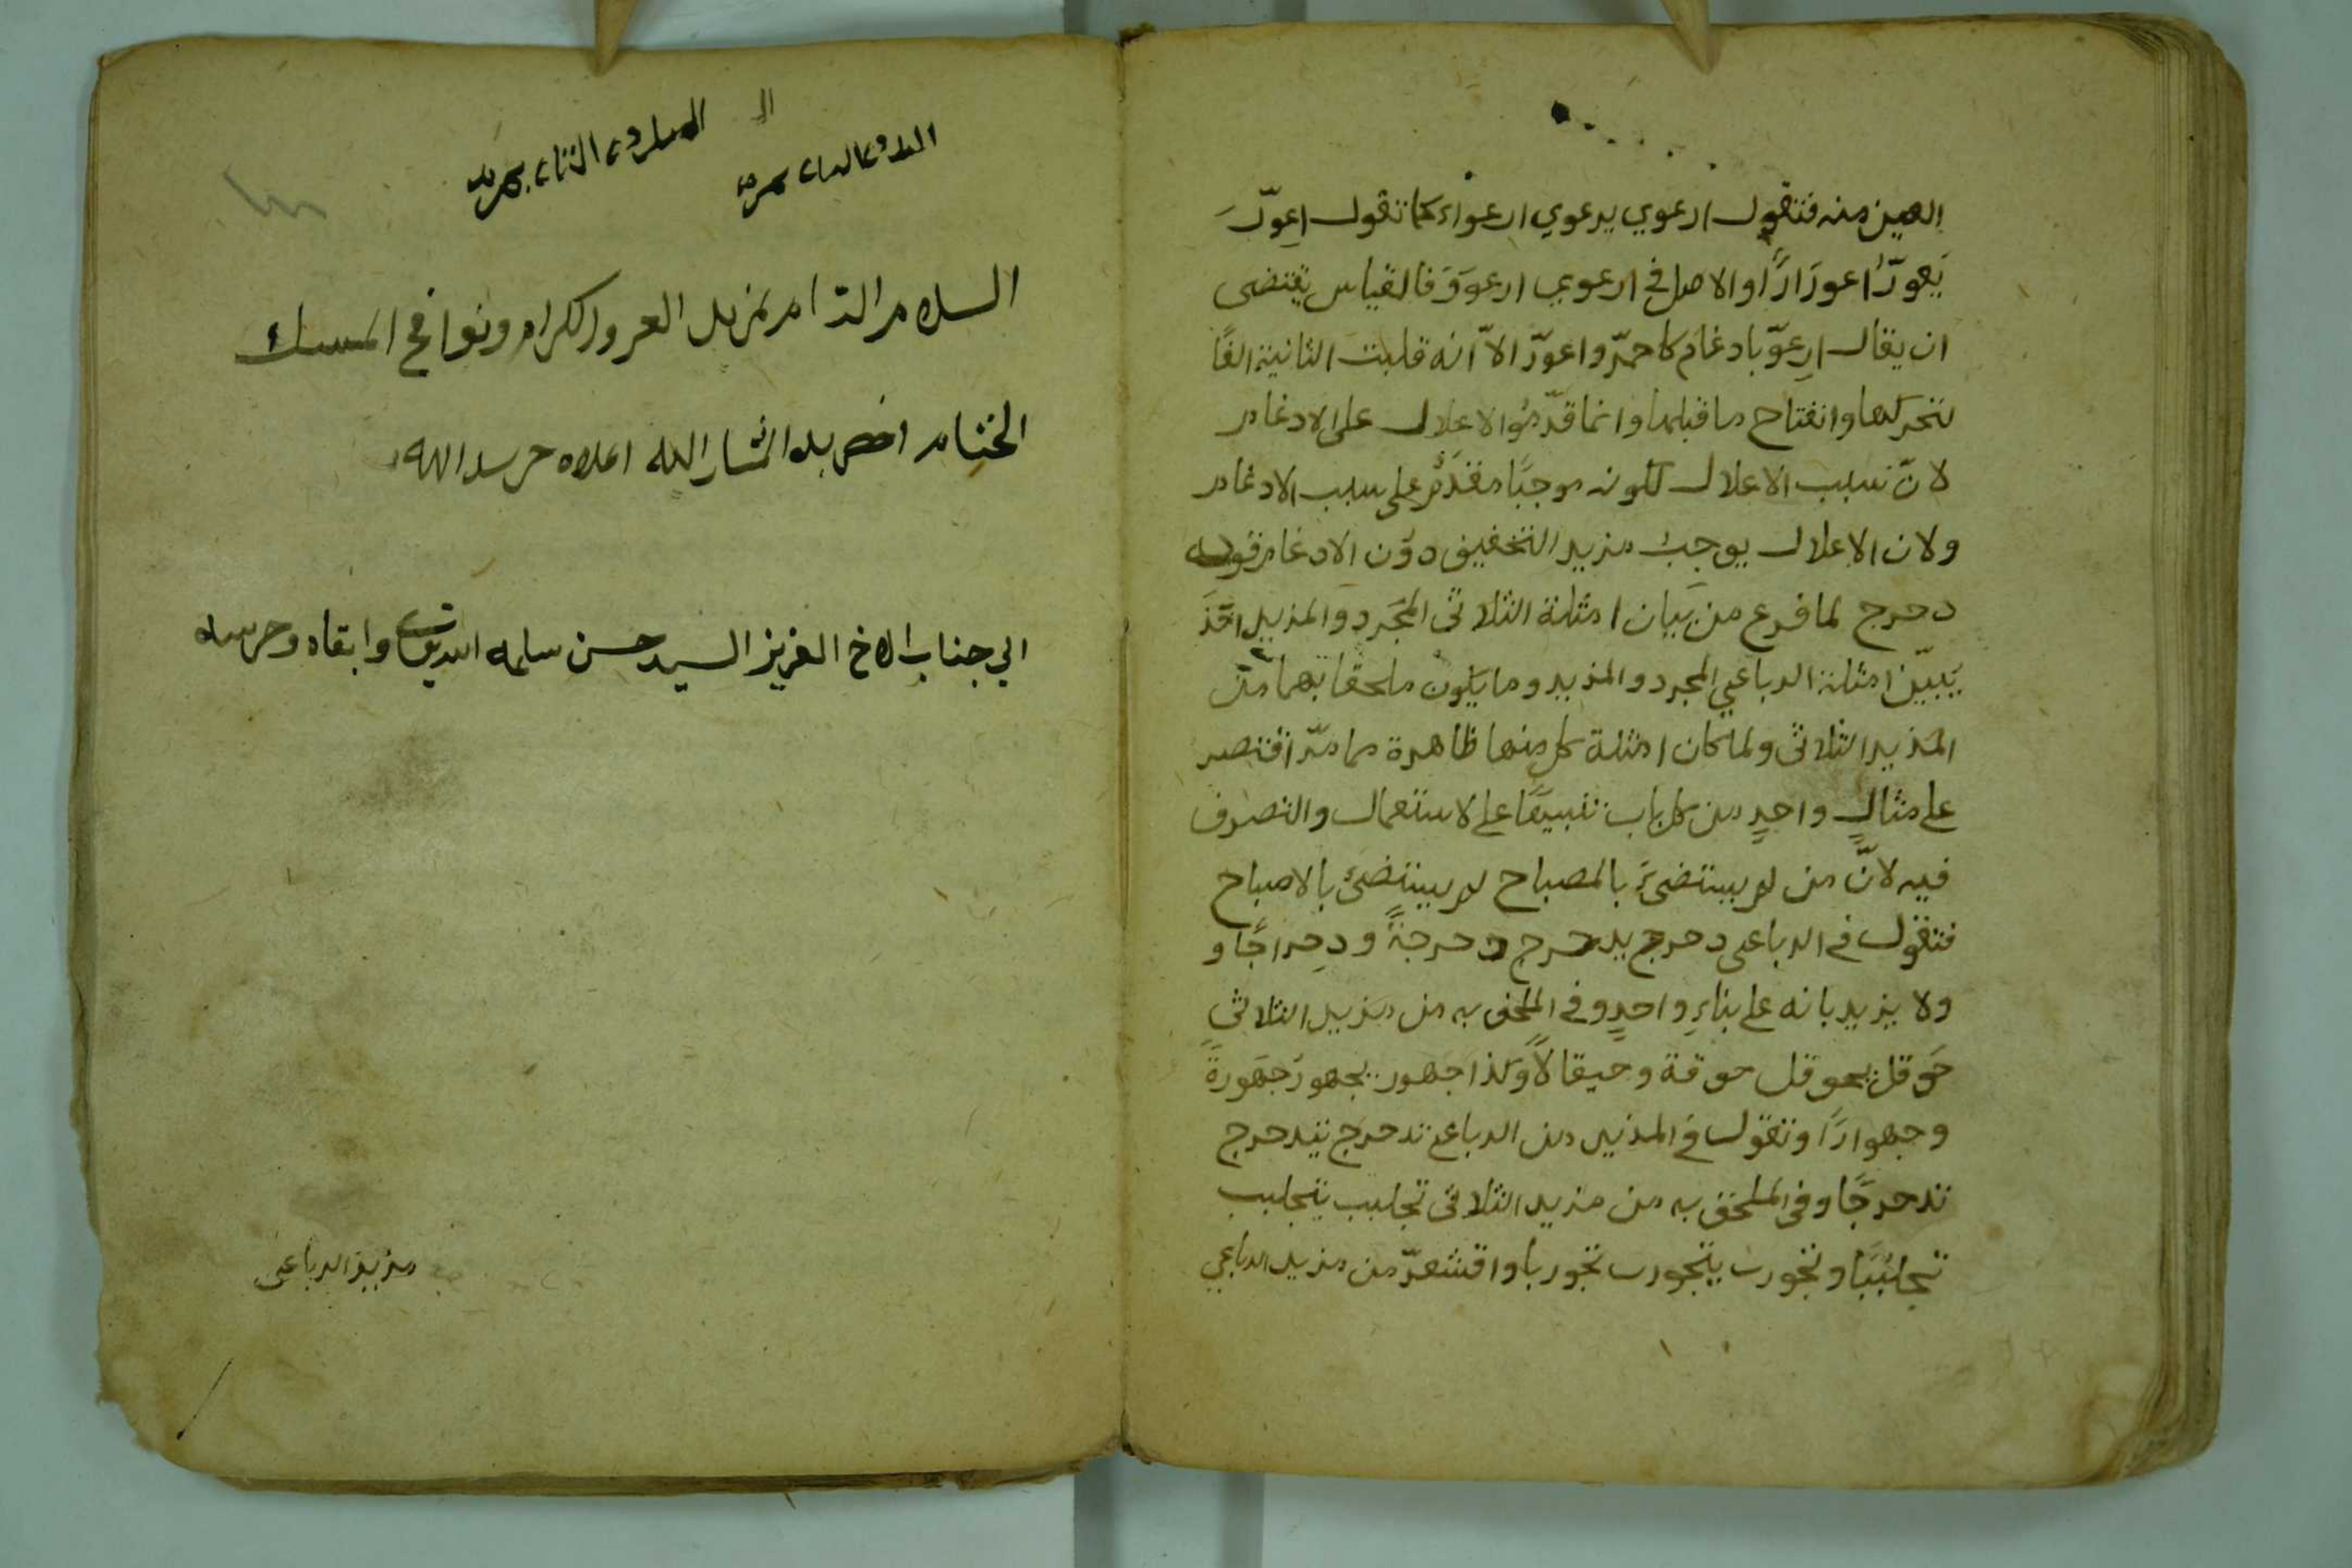 العين منه فتقول ارعوي يرعوي ارعواء كما تقول اعوّرَ
يَعورّ اعورَارًا والاصل في ارعوي ارعوَوَ فالقياس يقتضى
ان يقال ارِعوّ بادغام كاحمرّ واعورّ الاّ انه قلبت الثانية الفًا
لتحركها وانفتاح ما قبلها وانما قدّموُا الاعلال على الادغام
لانّ سبب الاعلال لكونه موجبًا مقدّم على سبب الادغام
ولان الاعلال يوجب مزيد التخفيف دوَن الادغام قوله
دحرج لما فرغ من بَيان امثلة الثلاثى المجَرد والمزيد اخَذَ
يَبيّن امثلة الرباعي المجرد والمزيد وما يَكون ملحقا بهما من
المزيد الثلاثى ولما كان امثلة كل منها ظاهرة مما مرّ اقتصر
على مثالٍ واحدٍ من كل باب تنبيهًا على لاستعمال والتصرف
فيه لانّ من لم يستضئ بالمصباح لم يستضئ بالاصباح
فتقول في الرباعى دحرج يدحرج دحرجةً ودِحراجًا و
ولا يزيد بانه على بناءٍ واحدٍ وفي الملحق به من مزيد الثلاثي
حَوقل يحوقل حوقة وحيقالاً وكذا جهور يجهورَ جَهورةً
وجهوارًا وتقول في المزيد من الرباعى تدحرج يتدحرج
تدحرجًا وفى الملحق به من مزيد الثلاثى تجلبب يتجلبب
تجلبُبَبا وتجورب يتجورب تجوربا واقشعرّ من مزيد الرباعي
السلام التام بمزيد العز والكرام ونوافح المسك
الختام اخص به المشار اليه اعلاه حرسه الله
الي جناب الاخ العزيز السيد حسن سلمه الله تعالى وابقاه وحرسه
مزيد الرباعى